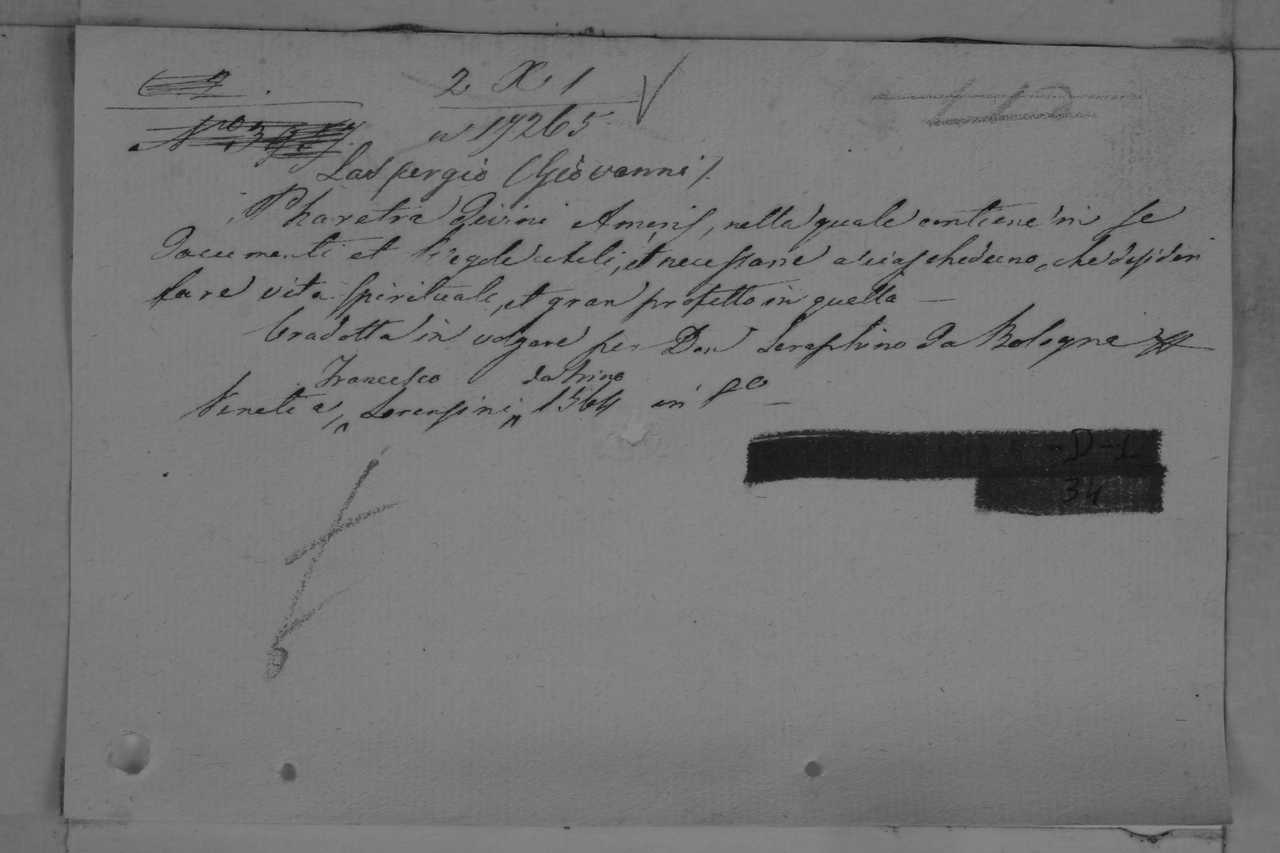 2 X. 1
n 19265
Laspergio (Giovanni).
Pharetra Divini Amoris, nella quale contiene in se
Documenti et Regole uteli, et necessarie a ciascheduno, che desideri
fare vita spirituale, et gran profetto in quella —
tradotta in volgare per Don Seraphino da Bologna
Francesco da Trino
Venetia, Lorenzini, 1564 in 8º —
D-L
34